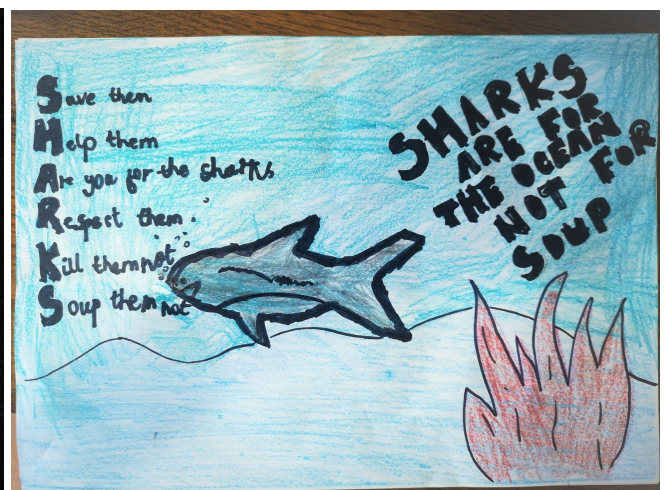 Save them
Help them
Are you for the sharks
Respect them
Kill them not
Soup them not
SHARKS
ARE FOR
THE OCEAN
NOT FOR
SOUP